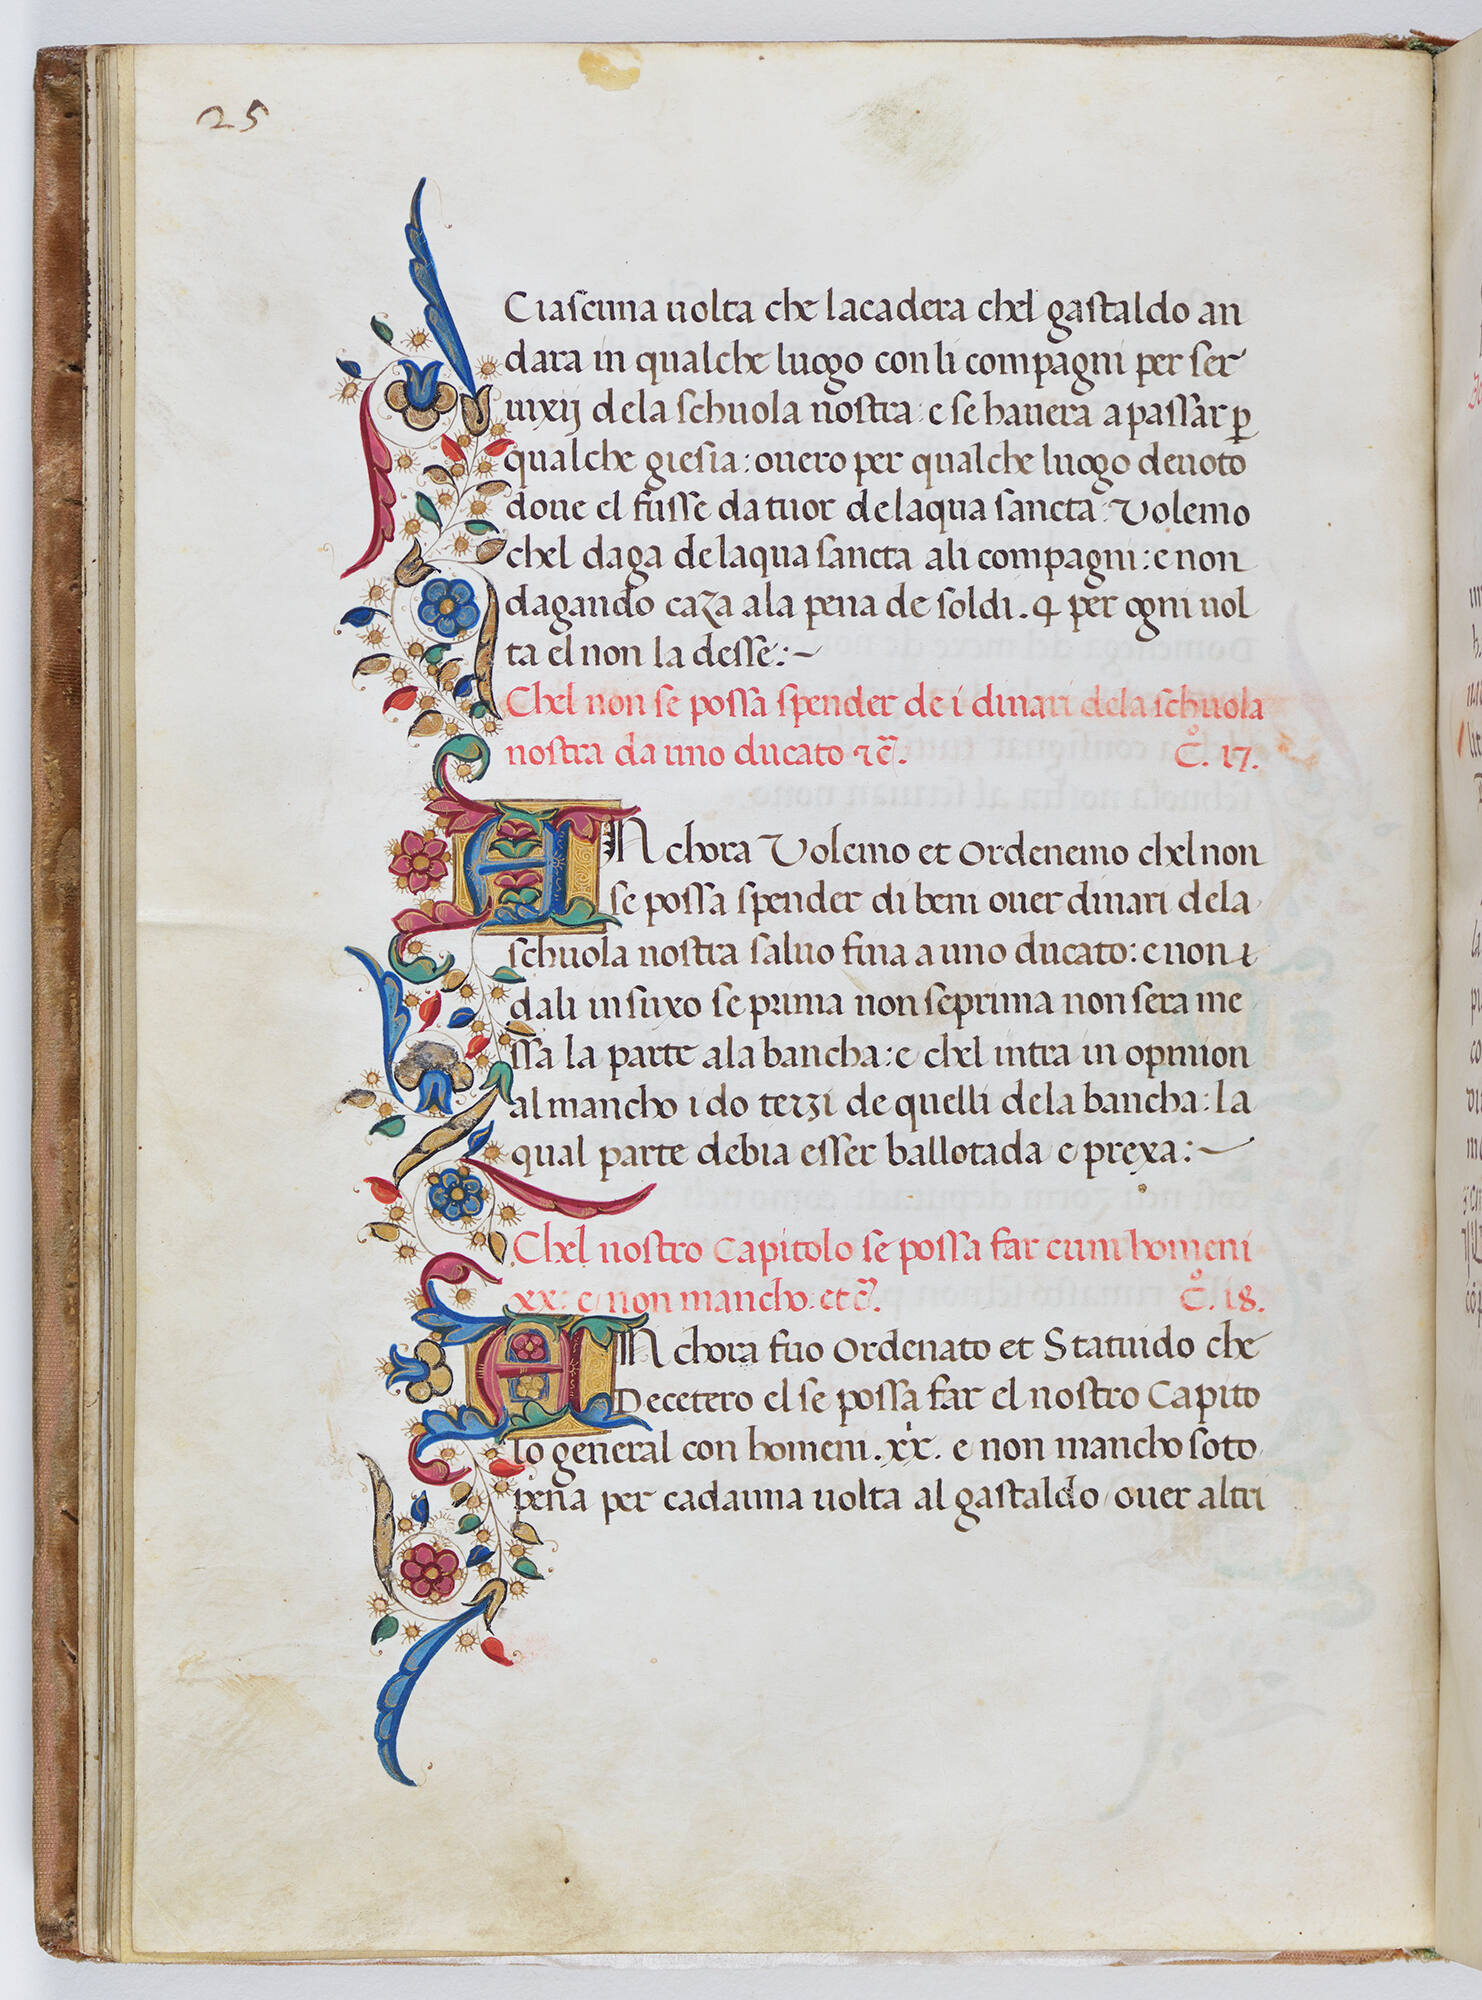 25
Ciascuna uolta che lacadera chel gastaldo an
dara in qualche luogo con li compagni per ser
uixij dela schuola nostra: e se hauera a passar ꝑ
qualche giesia: ouero per qualche luogo deuoto
doue el fusse da tuor delaqua sancta: Volemo
chel daga delaqua sancta ali compagni: e non
dagando caza ala pena de soldi. 4 per ogni uol
ta el non la desse:~
Chel non se possa spender de i dinari dela schuola
nostra da uno ducato ⁊ c̃. C̊. 17.
ANchora Volemo et Ordenemo chel non
se possa spender di beni ouer dinari dela
schuola nostra saluo fina a uno ducato: e non i
dali in suxo se prima non seprima non sera me
ssa la parte ala bancha: e chel intra in opinion
al mancho i do terzi de quelli dela bancha: la
qual parte debia esser ballotada e prexa:~
Chel nostro Capitolo se possa far cum homeni
xx: e non mancho: et c̃. C̊. 18.
ANchora fuo Ordenato et Statuido che
Decetero el se possa far el nostro Capito
lo general con homeni .xx. e non mancho soto
pena per cadauna uolta al gastaldo ouer altri